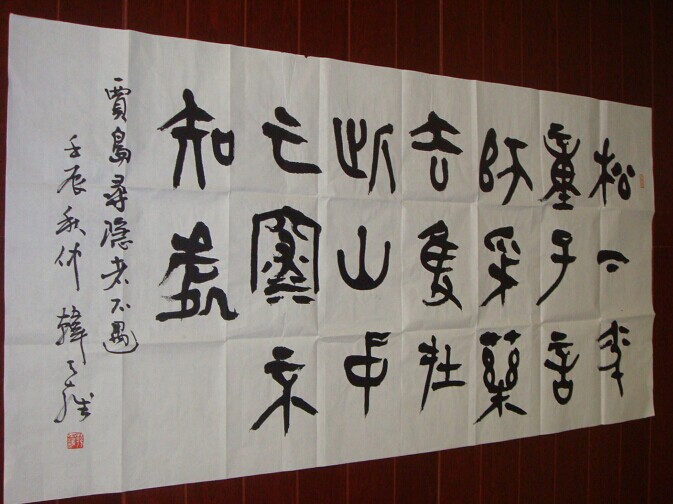 松下
童子言
師采藥
去隻在
此山中
云深不
知處
賈島尋隱者不遇
壬辰秋仲 韓